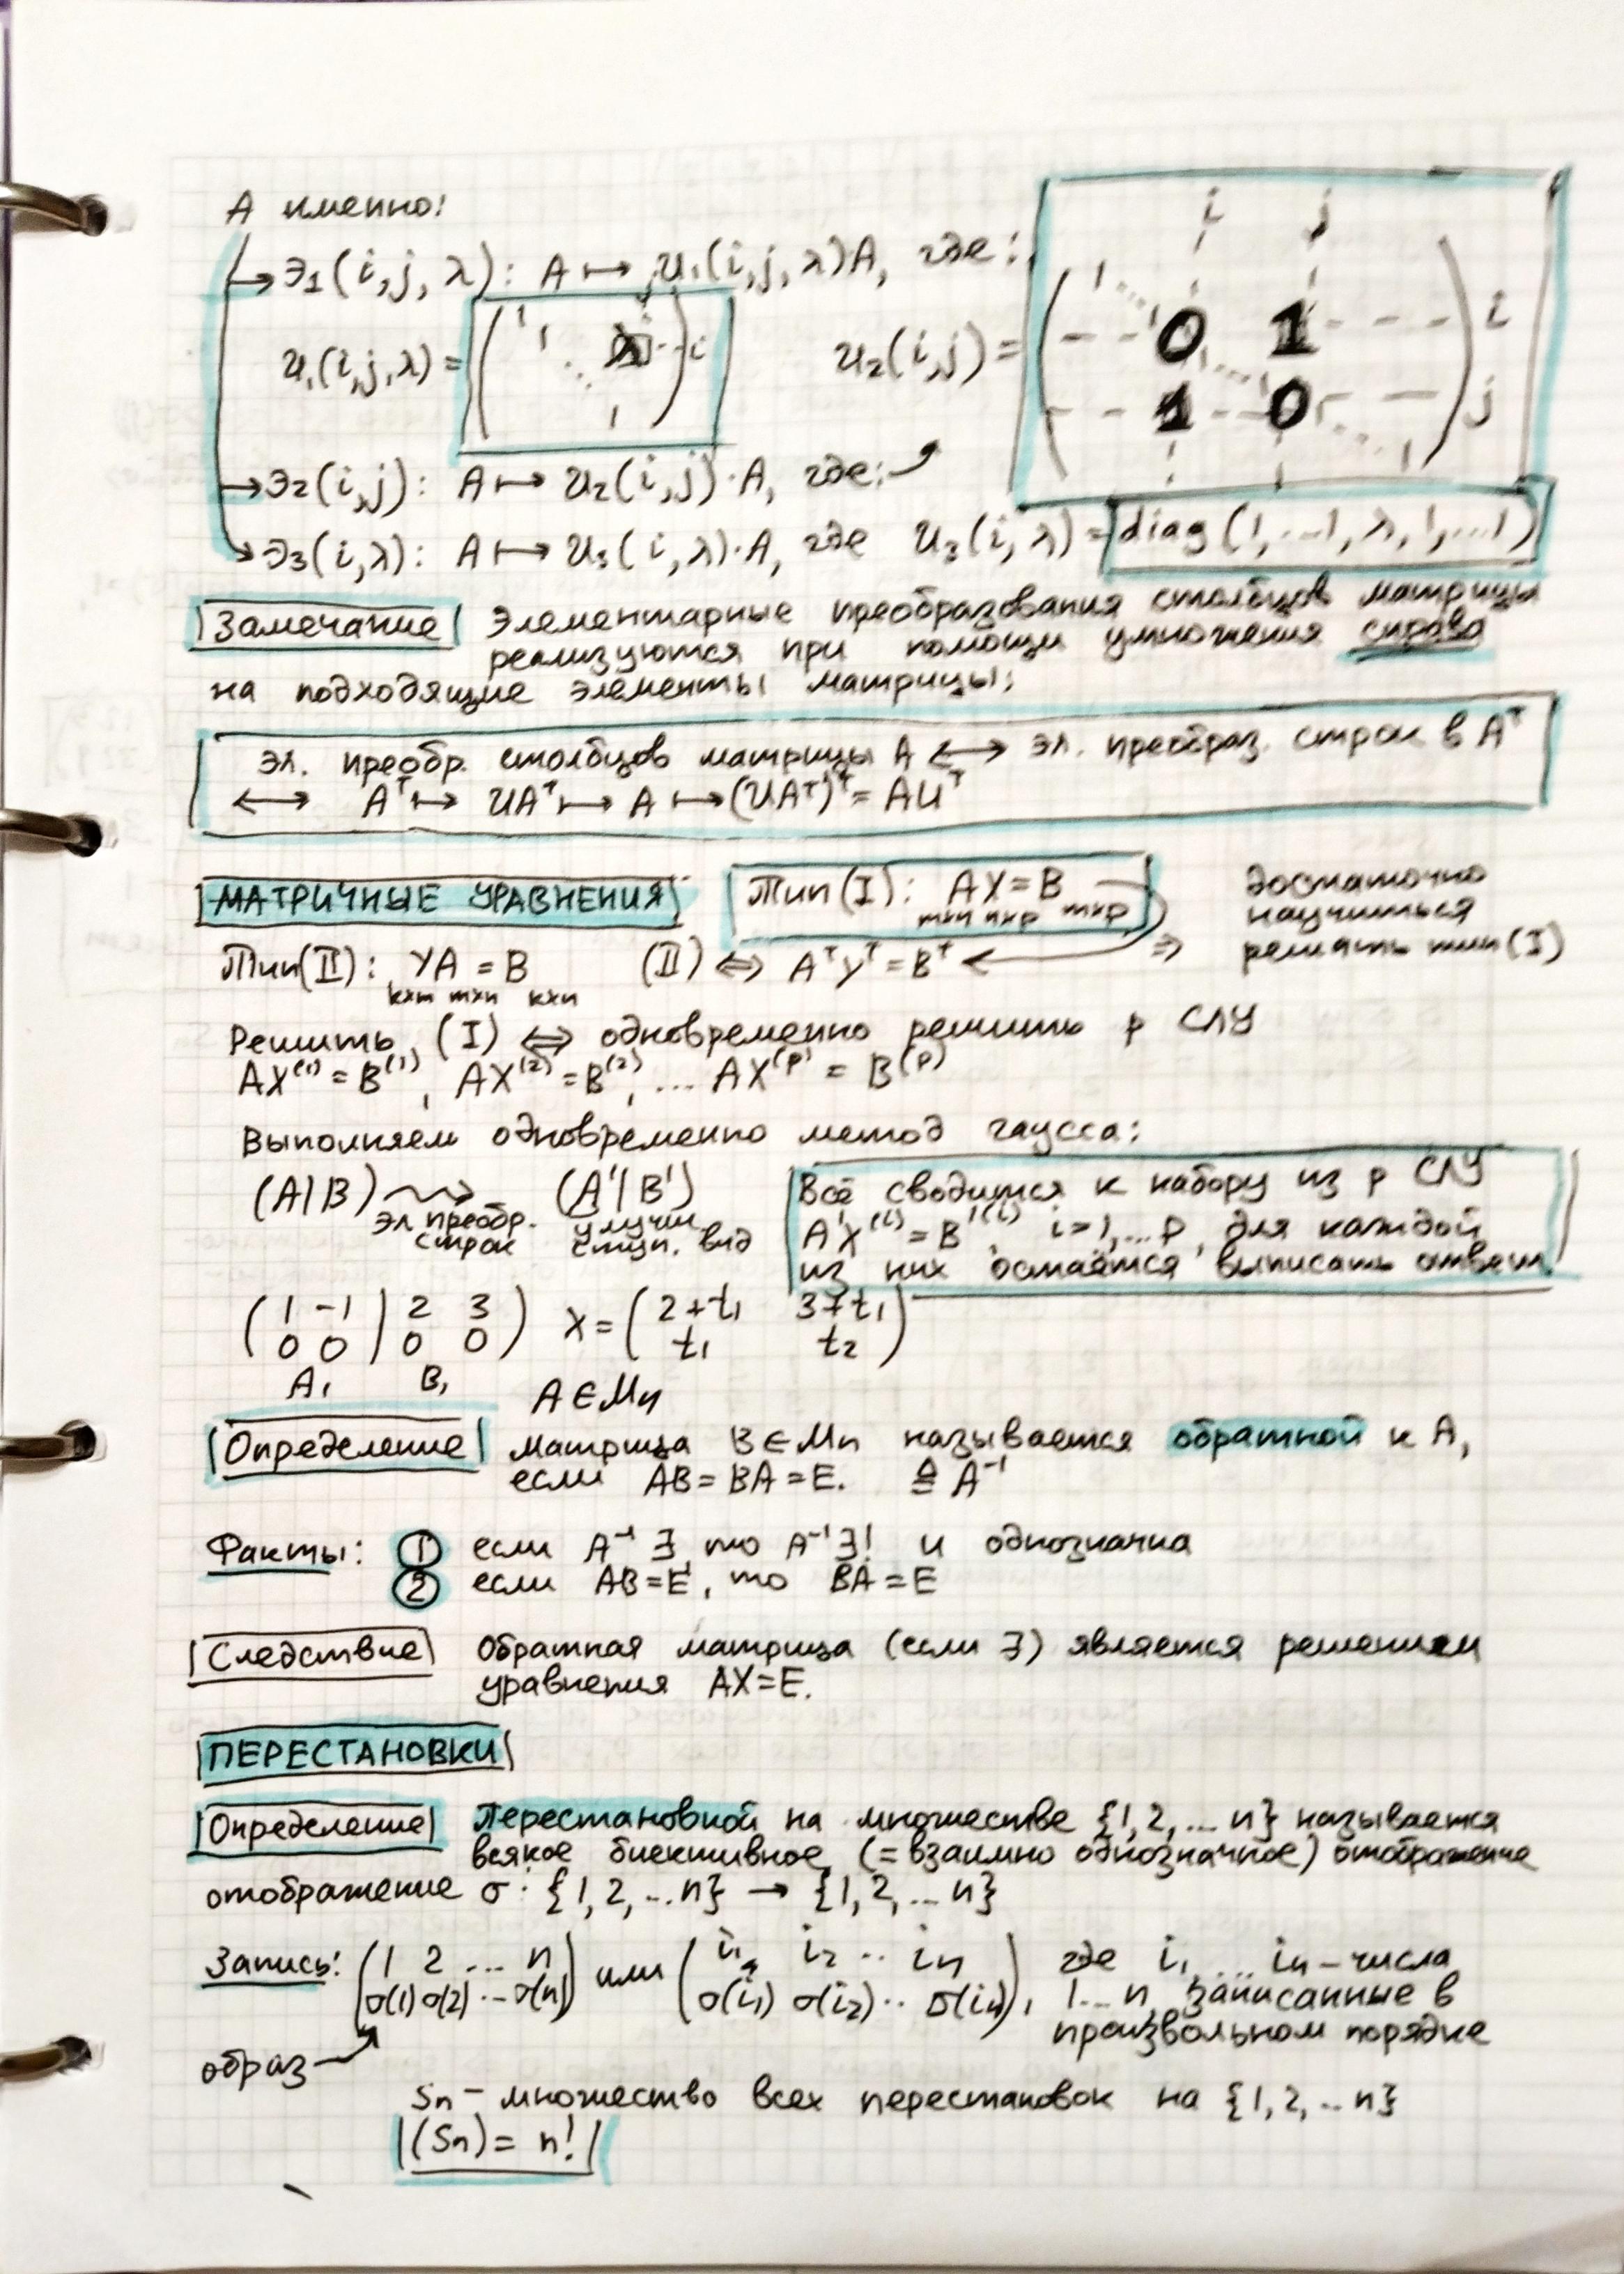 А именно:
→ Э1(i,j,λ): A ↦ U₁(i,j,λ)A, где:
U₁(i,j,λ) = ( 1 1 ⋱ λ 1 ) i
U₂(i,j) = ( 1 ⋱ 0 1 ⋱ 1 0 ⋱ 1 ) i j i j
→ Э2(i,j): A ↦ U₂(i,j)·A, где:
→ Э3(i,λ): A ↦ U₃(i,λ)·A, где U₃(i,λ) = diag(1,...1,λ,1,...1)
Замечание Элементарные преобразования столбцов матрицы
реализуются при помощи умножения справа
на подходящие элементы матрицы:
эл. преобр. столбцов матрицы A ⟷ эл. преобраз. строк в Aᵀ
⟷ Aᵀ ↦ UAᵀ ↦ A ↦ (UAᵀ)ᵀ = AUᵀ
МАТРИЧНЫЕ УРАВНЕНИЯ Тип(I): AX = B
m×n n×p m×p
достаточно
научиться
⇒ решать тип(I)
Тип(II): YA = B (II) ⇔ AᵀYᵀ = Bᵀ
k×m m×n k×n
Решить (I) ⇔ одновременно решить p СЛУ
AX⁽¹⁾ = B⁽¹⁾, AX⁽²⁾ = B⁽²⁾, ... AX⁽ᵖ⁾ = B⁽ᵖ⁾
Выполняем одновременно метод гаусса:
(A|B) ⇝ (A'|B')
эл преобр. улучш.
строк ступ. вид
Всё сводится к набору из p СЛУ
A'X⁽ⁱ⁾ = B'⁽ⁱ⁾, i=1,...p, для каждой
из них остаётся выписать ответ
( 1 -1 | 2 3 ) X = ( 2+t₁ 3+t₁ )
( 0 0 | 0 0 ) ( t₁ t₂ )
A₁ B₁ A∈Mn
Определение Матрица B∈Mn называется обратной к A,
если AB = BA = E. ≙ A⁻¹
Факты: ① если A⁻¹ ∃, то A⁻¹ ∃! и однозначна
② если AB=E, то BA=E
Следствие Обратная матрица (если ∃) является решением
уравнения AX=E.
ПЕРЕСТАНОВКИ
Определение Перестановкой на множестве {1,2,...n} называется
всякое биективное (=взаимно однозначное) отображение
отображение σ: {1,2,...n} → {1,2,...n}
Запись: ( 1 2 ... n ) или ( i₁ i₂ .. in ) где i₁ ... in – числа
( σ(1) σ(2) ... σ(n) ) ( σ(i₁) σ(i₂) .. σ(in) ), 1...n, записанные в
произвольном порядке
образ
Sn – множество всех перестановок на {1,2,..n}
(Sn) = n!